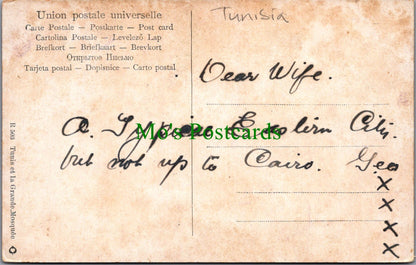 Union postale universelle
Carte Postale — Postkarte — Post card
Cartolina Postale — Levelező Lap
Brefkort — Briefkaart — Brevkort
Открытое Письмо
Tarjeta postal — Dopisnice — Carto postal
Tunisia
Dear Wife.
A Typical Eastern City.
but not up to Cairo. Geo
x
x
x
x
Mo's Postcards
R 503 Tunis et la Grande-Mosquée